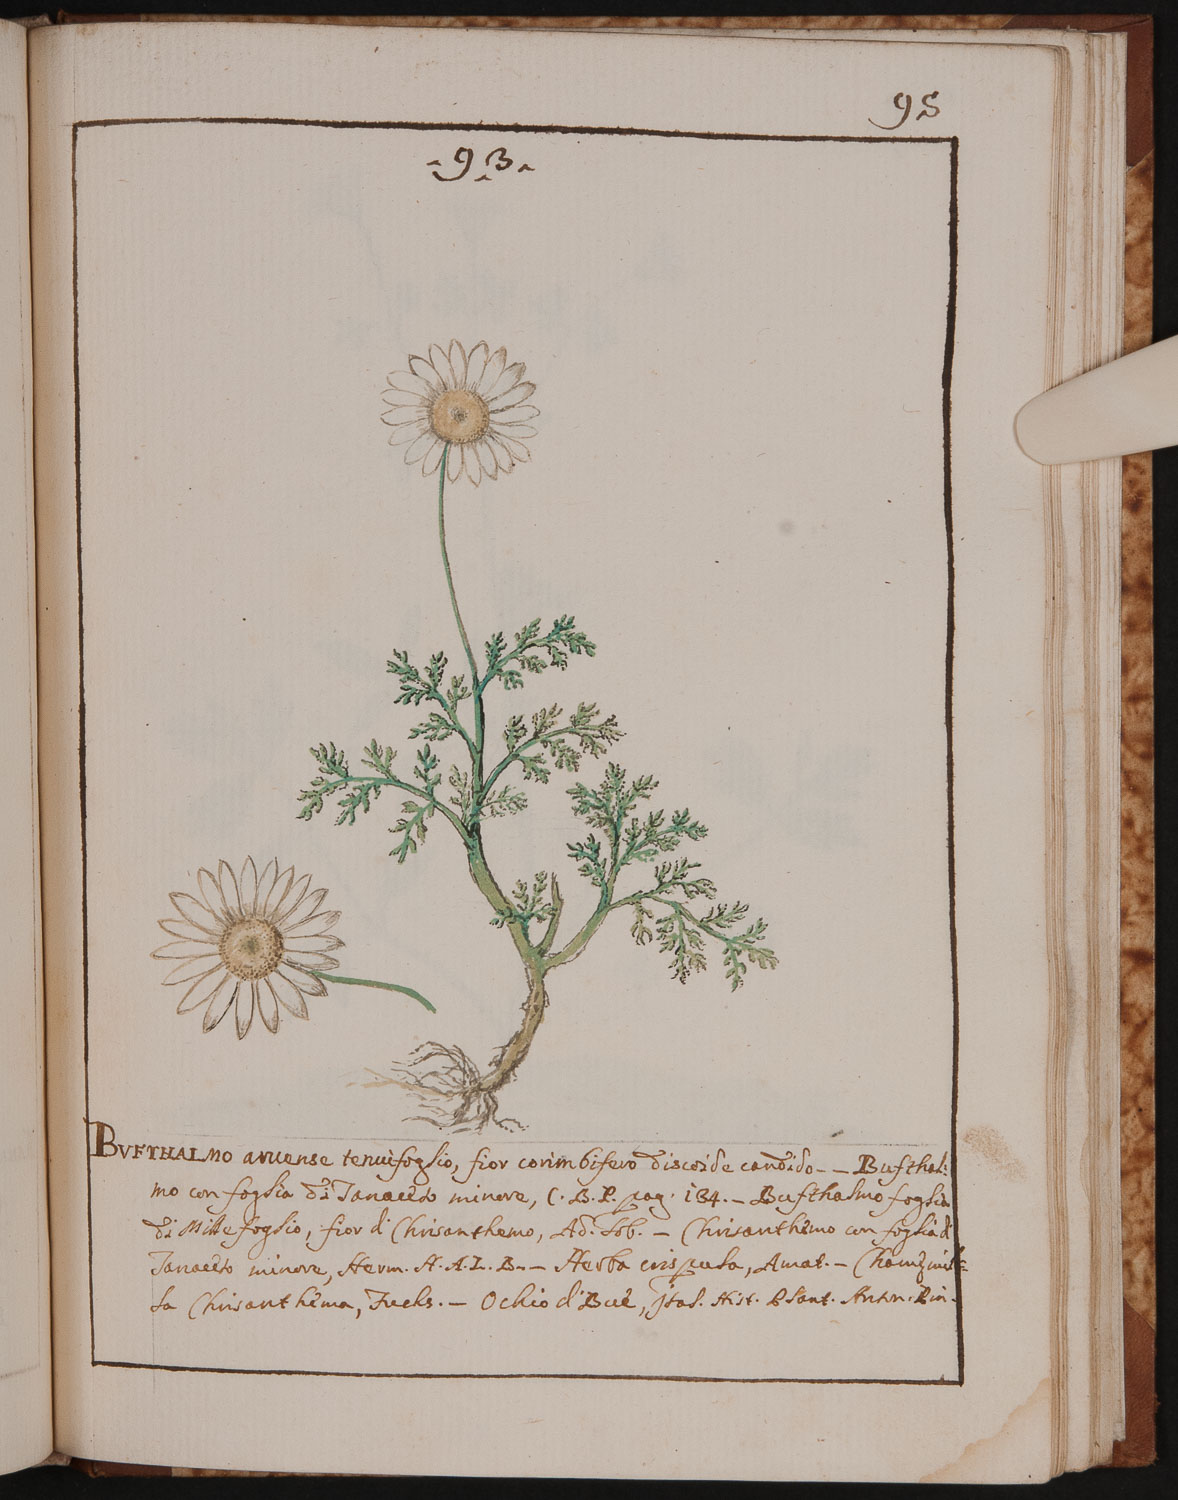 95
-93.-
BVFTHALMO aruense tenuifoglio, fior corimbifero discoide candido -- Bufthal:
mo con foglia di Tanaceto minore, C. B. P. pag. 134. - Bufthalmo foglia
di Mille foglio, fior di Chrisanthemo, Ad. Lob. - Chrisanthemo con foglia di
Tanaceto minore, Herm. H. A. L. B. - Herba crispula, Amat. - Chamemil=
la Chrisanthema, Fuchs. - Ochio di Bue, Ital. Hist. Plant. Antn. Pin.